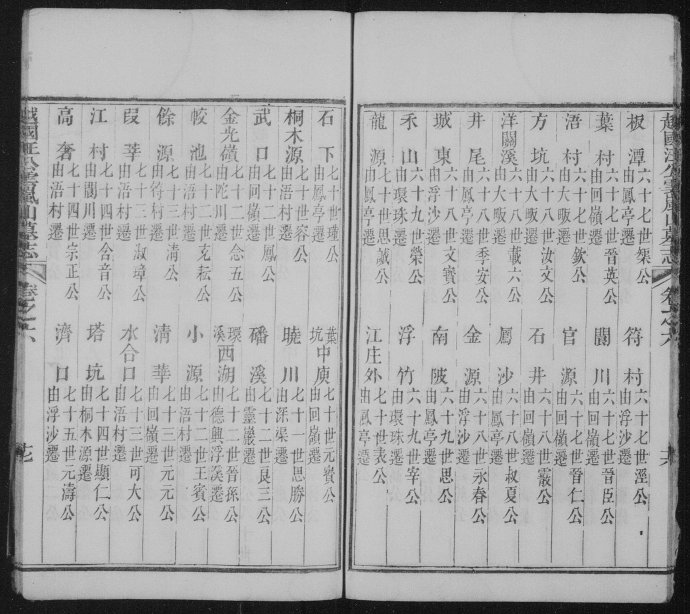 越國汪公雲嵐山墓志 卷之六 十六
板潭 六十七世榘公 由鳳亭遷
符村 六十七世溼公 由浮沙遷
葉村 六十七世晉英公 由回嶺遷
閬川 六十七世晉臣公 由回嶺遷
浯村 六十七世欽公 由大畈遷
官源 六十七世晉仁公 由回嶺遷
方坑 六十八世汝文公 由大畈遷
石井 六十八世霰公 由回嶺遷
洋關溪 六十八世載六公 由大畈遷
鳳沙 六十八世叔夏公 由回嶺遷
井尾 六十八世季安公 由鳳亭遷
金源 六十八世永春公 由浮沙遷
城東 六十八世文賓公 由浮沙遷
南陂 六十九世思公 由鳳亭遷
禾山 六十九世榮公 由環珠遷
浮竹 六十九世宰公 由環珠遷
龍源 七十世思誠公 由鳳亭遷
江庄外 七十世表公 由鳳亭遷
石下 七十世瑾公 由鳳亭遷
葉坑中庾 七十世元賓公 由回嶺遷
桐木源 七十世容公 由回嶺遷
曉川 七十一世思勝公 由深渠遷
武口 七十二世鳳公 由回嶺遷
磻溪 七十二世良三公 由靈巖遷
金光磺 七十二世念五公 由陀川遷
環溪西湖 七十二世晉孫公 由德興浮溪遷
較池 七十二世克耘公 由浯村遷
小源 七十二世王賓公 由浯村遷
餘源 七十三世清公 由符村遷
清華 七十三世元元公 由回嶺遷
葭莘 七十三世淑璋公 由浯村遷
水合口 七十三世可大公 由浯村遷
江村 七十四世合音公 由閬川遷
塔坑 七十四世顯仁公 由桐木源遷
高奢 七十四世宗正公 由浯村遷
濟口 七十五世元濤公 由浮沙遷
越國汪公雲嵐山墓志 卷之六 十七